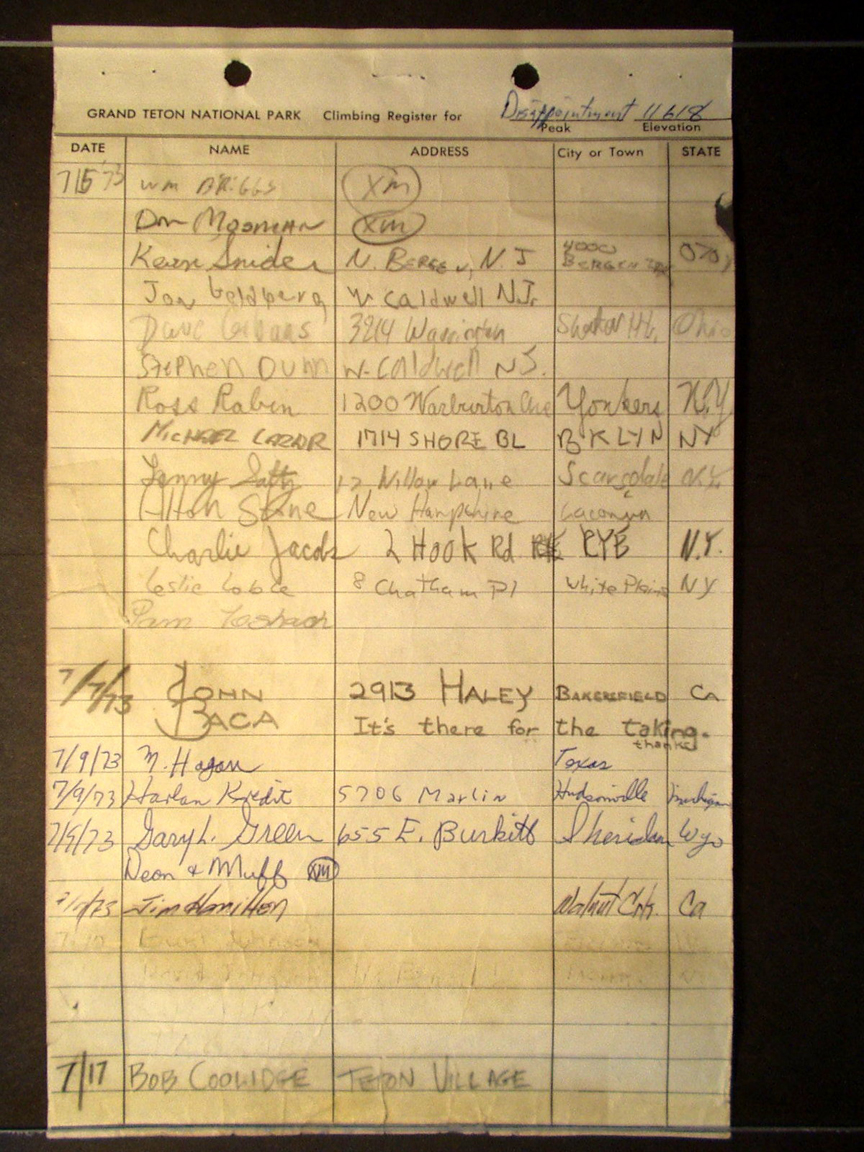 GRAND TETON NATIONAL PARK Climbing Register for Disappointment 11618
Peak Elevation
DATE NAME ADDRESS City or Town STATE
7/5 73 Wm BRIGGS XM
Don MOSMAN XM
Keven Snider N. BERGEN, N.J 4000 BERGEN
Jon Goldberg W Caldwell N.J.
Dave 3214 Warrington Shaker Hts. Ohio
STEPHEN DUNN W. CAldwell NJ.
Ross Rabin 1200 Warburton Ave Yonkers N.Y.
MICHAEL LAZAR 1714 SHORE BL BKLYN NY
12 Willow Lane Scarsdale N.Y.
Alton Stone New Hampshire Laconia
Charlie Jacobs 2 HOOK Rd RYE N.Y.
Leslie Loble 8 Chatham Pl White Plains NY
Pam
7/7/73 JOHN BACA 2913 HALEY BAKERSFIELD Ca
It's there for the taking.
thanks
7/9/73 M. Hagan Texas
7/9/73 Harlan Kredit 5706 Marlin Hudsonville Michigan
7/9/73 Gary L. Green 655 E. Burkitt Sheridan Wyo
Deon & Muff XM
Jim Hamilton Walnut Crk. Ca
7/10
David
7/17 BOB COOLIDGE TETON VILLAGE